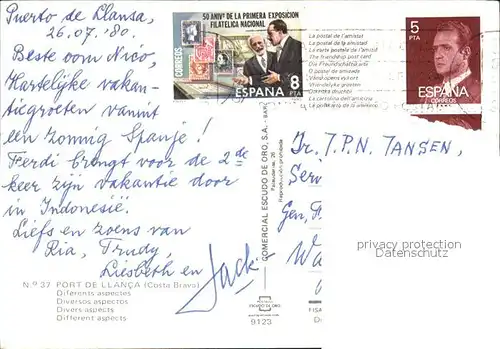 Puerto de Llansa,
26.07.'80.
Beste oom Nico,
Hartelijke vakan-
tiegroeten vanuit
een zonnig Spanje!
Ferdi brengt voor de 2de
keer zijn vakantie door
in Indonesië.
Liefs en zoens van
Ria, Trudy,
Liesbeth en
Jack
N.º 37 PORT DE LLANÇA (Costa Brava)
Diferents aspectes
Diversos aspectos
Divers aspects
Different aspects
50 ANIVº DE LA PRIMERA EXPOSICION
FILATELICA NACIONAL
CORREOS
8
PTA
ESPAÑA
La postal de l'amistat
La postal de la amistad
La carte de l'amitié
The friendship post card
Die Freundschaftskarte
O postal da amizade
Vänskapens kort
Vriendelijke groeten
La cartolina dell'amicizia
5
PTA
ESPAÑA
CORREOS
COMERCIAL ESCUDO DE ORO, S.A.
Reproducción prohibida
ESCUDO DE ORO
9123
Dr. J.P.N. JANSEN,
privacy protection
Datenschutz